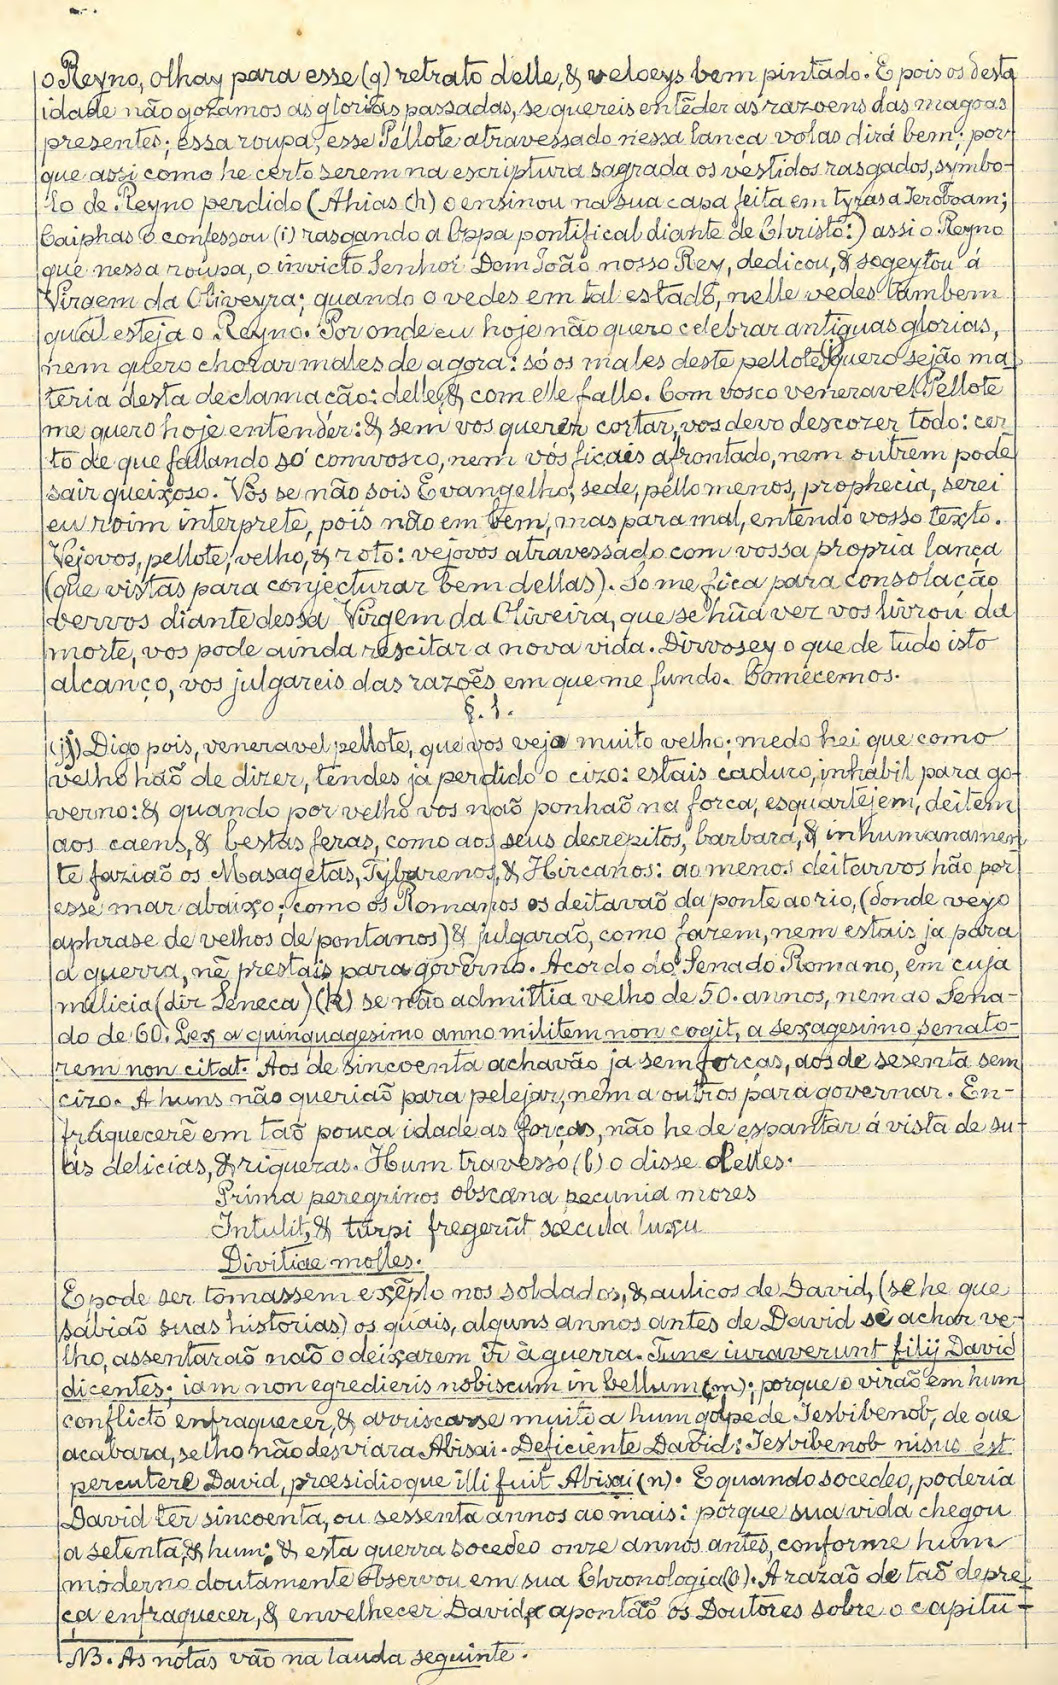 o Reyno, olhay para esse (g) retrato delle, & veloeys bem pintado. E pois os desta
idade não gozamos as glorias passadas, se quereis entẽder as razoens das magoas
presentes; essa roupa, esse Pellote atravessado nessa lança volas dirá bem; por-
que assi como he certo serem na escriptura sagrada os vestidos rasgados, symbo-
lo de Reyno perdido (Ahias (h) o ensinou na sua capa feita em tyras a Ieroboam;
Caiphas o confessou (i) rasgando a Oppa pontifical diante de Christo:) assi o Reyno
que nessa roupa, o invicto Senhor Dom João nosso Rey, dedicou, & sogeytou á
Virgem da Oliveyra; quando o vedes em tal estado, nelle vedes tambem
qual esteja o Reyno. Por onde eu hoje não quero celebrar antiguas glorias,
nem quero chorar males de agora: só os males deste pellote (j) quero sejão ma-
teria desta declamação: delle, & com elle fallo. Com vosco veneravel Pellote
me quero hoje entender: & sem vos querer cortar, vos devo descozer todo: cer-
to de que fallando só comvosco, nem vós ficais afrontado, nem outrem pode
sair queixoso. Vós se não sois Evangelho, sede, pello menos, prophecia, serei
eu roim interprete, pois não em bem, mas para mal, entendo vosso texto.
Vejovos, pellote, velho, & roto: vejovos atravessado com vossa propria lança
(que vistas para conjecturar bem dellas). So me fica para consolação
vervos diante dessa Virgem da Oliveira, que se hũa vez vos livrou da
morte, vos pode ainda rescitar a nova vida. Dirvosey o que de tudo isto
alcanço, vos julgareis das razoẽs em que me fundo. Comecemos.
§. 1.
(jj) Digo pois, veneravel pellote, que vos vejo muito velho; medo hei que como
velho haõ de dizer, tendes ja perdido o cizo: estais caduco, inhabil para go-
verno: & quando por velho vos naõ ponhaõ na forca, esquartejem, deitem
aos caens, & bestas feras, como aos seus decrepitos, barbara, & inhumanamen-
te faziaõ os Masagetas, Tybarenos, & Hircanos: ao menos deitarvos hão por
esse mar abaixo; como os Romanos os deitavaõ da ponte ao rio, (donde veyo
aphrase de velhos de pontanos) & julgaraõ, como fazem, nem estais ja para
a guerra, nẽ prestais para governo. Acordo do Senado Romano, em cuja
milicia (diz Seneca) (k) se não admittia velho de 50. annos, nem ao Sena-
do de 60. Lex a quinquagesimo anno militem non cogit, a sexagesimo senato-
rem non citat. Aos de sincoenta achavão ja sem forças, aos de sesenta sem
cizo. A huns não queriaõ para pelejar, nem a outros para governar. En-
fraquecerẽ em taõ pouca idade as forças, não he de espantar á vista de su-
as delicias, & riquezas. Hum travesso (l) o disse delles.
Prima peregrinos obscæna pecunia mores
Intulit, & turpi fregerũt sæcula luxu
Divitiae molles.
E pode ser tomassem exẽplo nos soldados, & aulicos de David, (se he que
sabiaõ suas historias) os quais, alguns annos antes de David se achar ve-
lho, assentaraõ naõ o deixarem ir à guerra. Tunc iuraverunt filij David
dicentes; iam non egredieris nobiscum in bellum (m); porque o viraõ em hum
conflicto enfraquecer, & arriscarse muito a hum golpe de Iesbibenob, de que
acabara, se lho não desviara Abisai. Deficiente David; Iesbibenob nisus est
percutere David, præsidioque illi fuit Abisai (n). E quando socedeo, poderia
David ter sincoenta, ou sessenta annos ao mais: porque sua vida chegou
a setenta, & hum; & esta guerra socedeo onze annos antes, conforme hum
moderno doutamente observou em sua Chronologia (o). A razaõ de taõ depre-
ça enfraquecer, & envelhecer David, apontaõ os Doutores sobre o capitu-
NB. As notas vão na lauda seguinte.